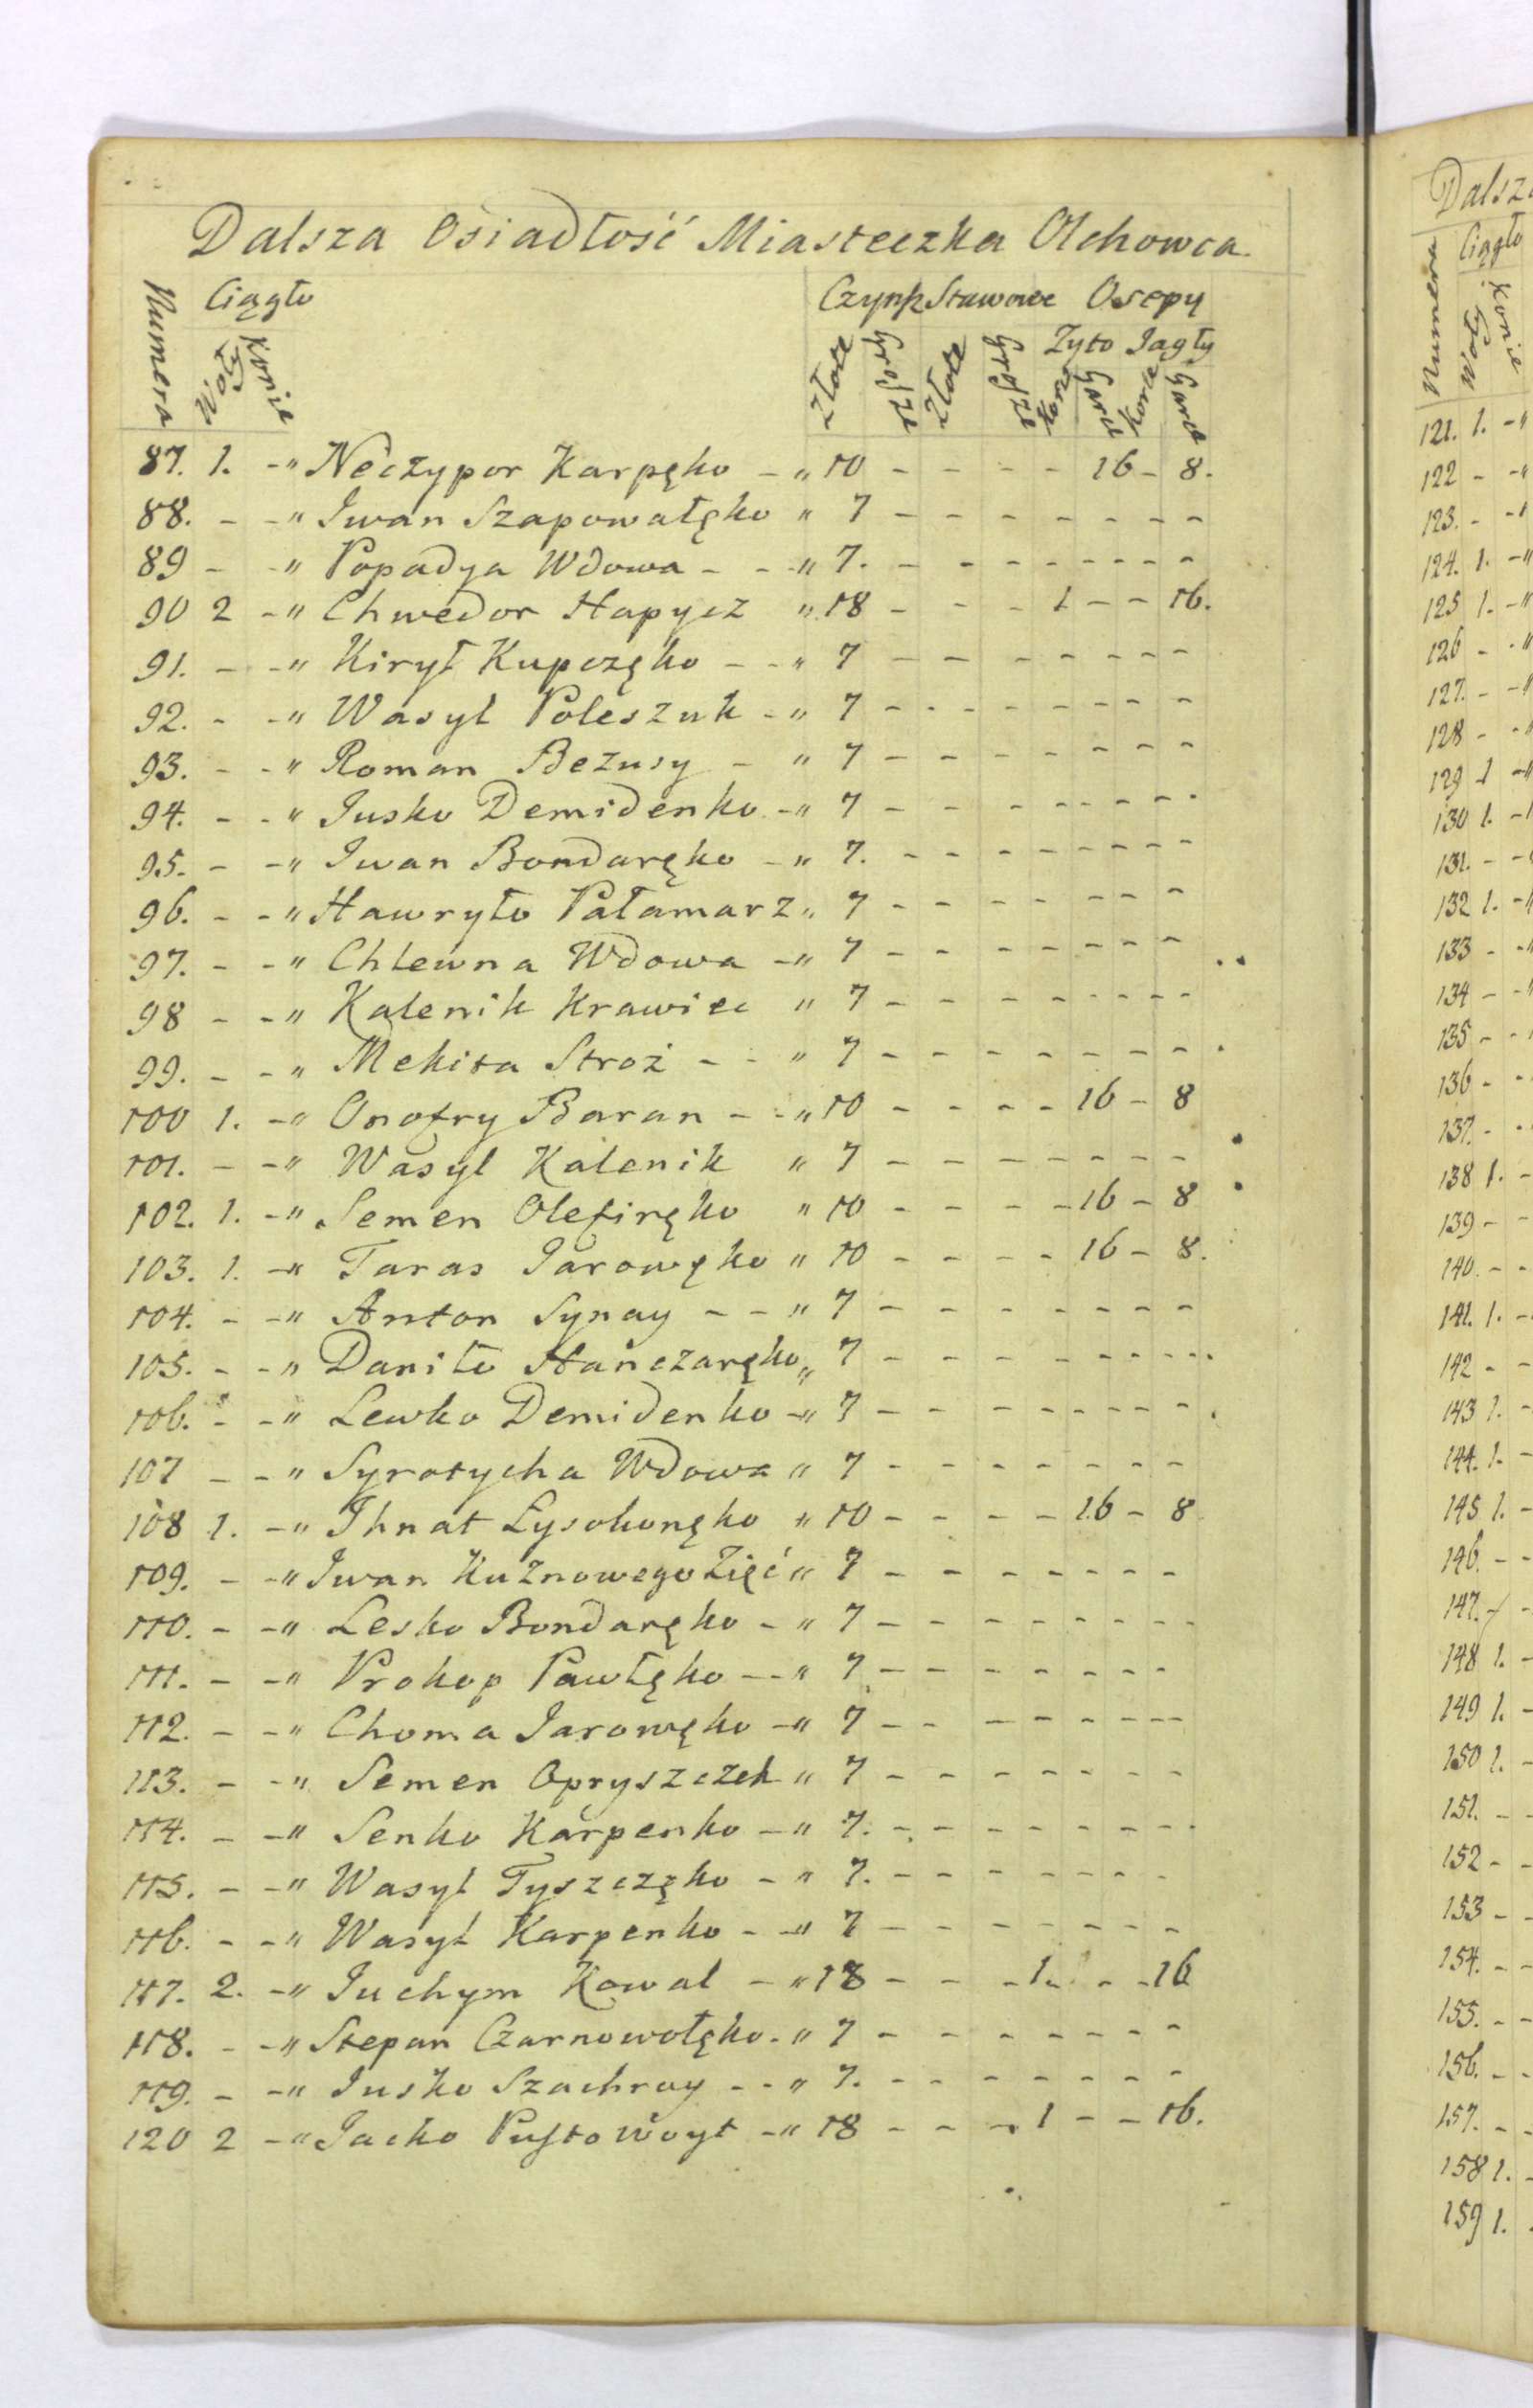 Dalsza Osiadłość Miasteczka Olchowca.
Numera Ciągło Czynsz Stawowe Osepy
Woły Konie Złote Grosze Złote Grosze Żyto Jagły
Korce Garce Korce Garce
87. 1. -" Neczypor Karpęko - " 10 - - - - 16 - 8.
88. - -" Iwan Szapowałęko " 7 - - - - - - - -
89 - -" Popadya Wdowa - - -" 7. - - - - - - - -
90 2 -" Chwedor Hapycz " 18 - - - 1 - - 16.
91. - -" Kirył Kupczęko - - " 7 - - - - - - - -
92. - -" Wasyl Poleszuk - " 7 - - - - - - - -
93. - -" Roman Bezusy - " 7 - - - - - - - -
94. - -" Jusko Demidenko -" 7 - - - - - - - -
95. - -" Iwan Bondaręko -" 7. - - - - - - - -
96. - -" Hawryło Pałamarz " 7 - - - - - - - -
97. - -" Chlewna Wdowa -" 7 - - - - - - - -
98 - -" Kalenik Krawiec " 7 - - - - - - - -
99. - -" Mekita Stroż - - " 7 - - - - - - - -
100 1. -" Onofry Baran - - " 10 - - - - 16 - 8
101. - -" Wasyl Kalenik " 7 - - - - - - - -
102. 1. -" Semen Olefiręko " 10 - - - - 16 - 8
103. 1. -" Taras Jarowęko " 10 - - - - 16 - 8.
104. - -" Anton Synay - - " 7 - - - - - - - -
105. - -" Daniło Hańczaręko " 7 - - - - - - - -
106. - -" Lewko Demidenko -" 7 - - - - - - - -
107 - -" Syrotycha Wdowa " 7 - - - - - - - -
108 1. -" Ihnat Łysokonęko " 10 - - - - 16 - 8
109. - -" Iwan Kuznowego Zięć " 7 - - - - - - - -
110. - -" Lesko Bondaręko - " 7 - - - - - - - -
111. - -" Prokop Pawłęko - - " 7 - - - - - - - -
112. - -" Choma Jarowęko -" 7 - - - - - - - -
113. - -" Semen Opryszczek " 7 - - - - - - - -
114. - -" Senko Karpenko -" 7. - - - - - - - -
115. - -" Wasyl Tyszczęko - " 7. - - - - - - - -
116. - -" Wasyl Karpenko - -" 7 - - - - - - - -
117. 2. -" Juchym Kowal - " 18 - - - 1. - - 16
118. - -" Stepan Czarnowołęko - " 7 - - - - - - - -
119. - -" Jusko Szachray - - " 7. - - - - - - - -
120 2 -" Jacko Pusto Woyt -" 18 - - - 1 - - 16.
Numera Ciągło
Woły Konie
121. 1. -"
122 - -"
123. - -"
124. 1. -"
125 1. -"
126 - -"
127. - -"
128 - -"
129 1 -"
130 1. -
131. - -
132 1. -"
133 - -"
134 - -"
135 - -
136 - -
137. - -
138 1. -
139 - -
140. - -
141. 1. -
142 - -
143 1. -
144. 1. -
145 1. -
146. - -
147. - -
148 1. -
149 1. -
150 1. -
151. - -
152 - -
153 - -
154. - -
155. - -
156. - -
157. - -
158 1. -
159 1.